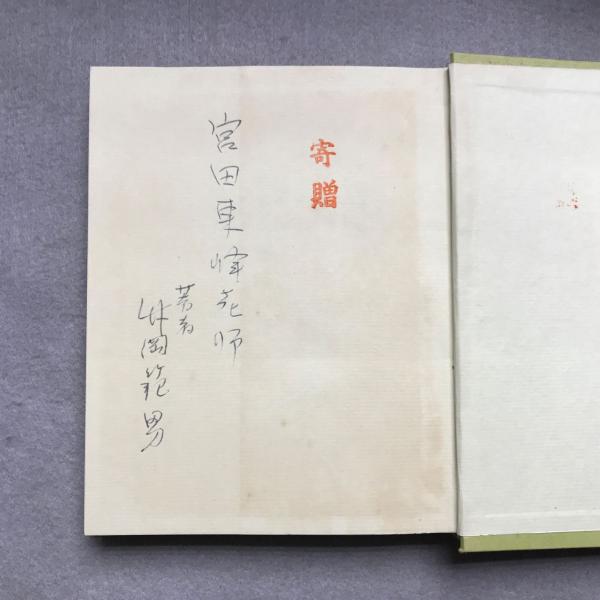 寄贈
宮田東峰先師
著者
竹岡範男